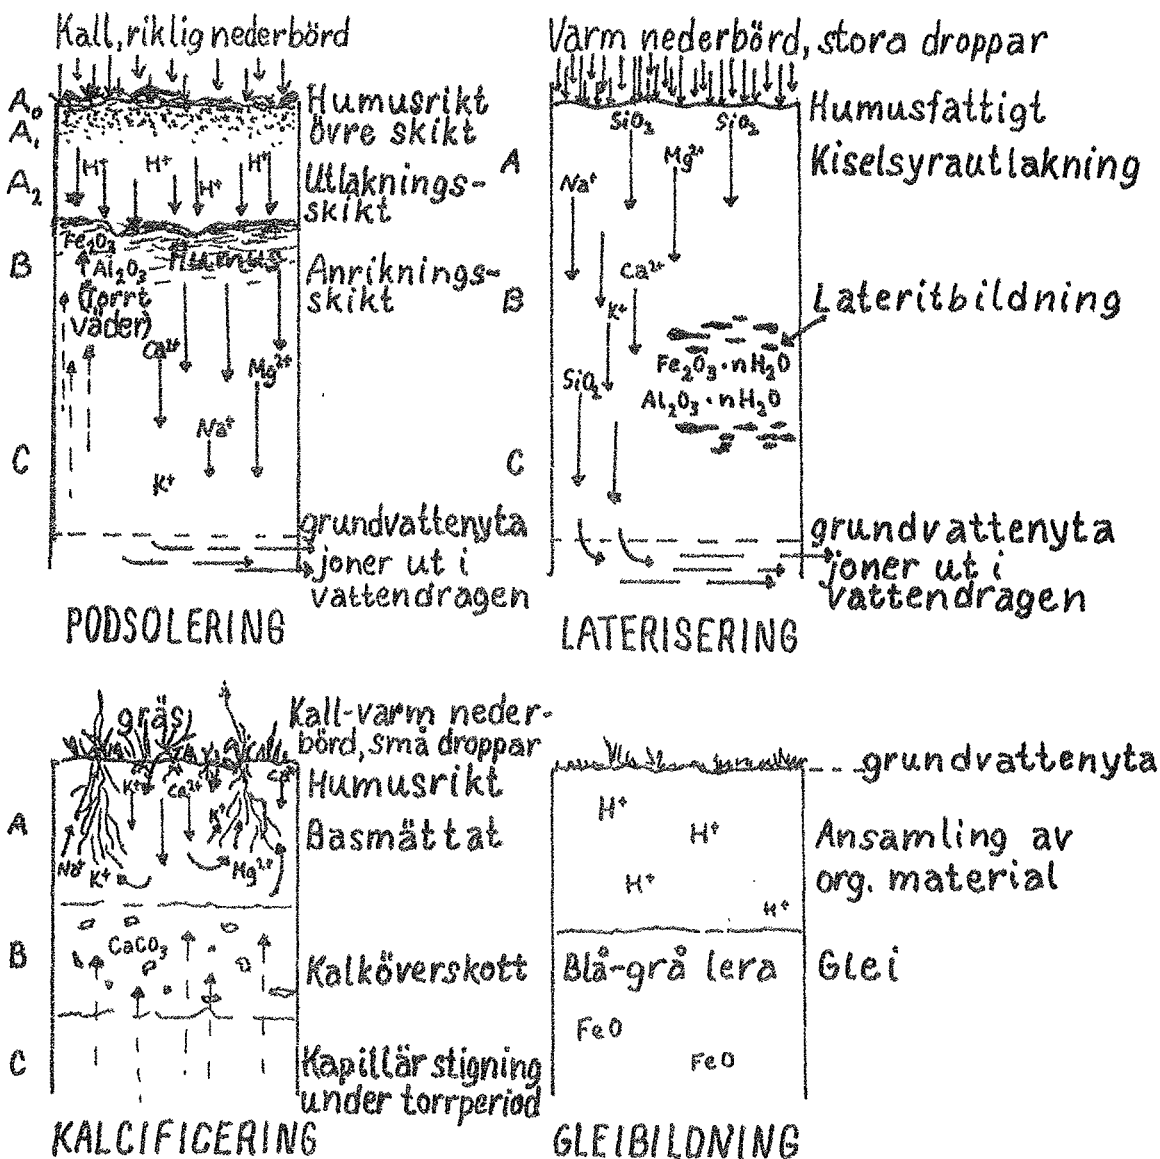 Kall, riklig nederbörd
A₀
Humusrikt
A₁
övre skikt
H⁺
H⁺
H⁺
H⁺
A₂
Utlaknings-
skikt
Fe₂O₃
Al₂O₃
Humus
B
Anriknings-
skikt
(Torrt
väder)
Ca²⁺
Mg²⁺
Na⁺
C
K⁺
grundvattenyta
joner ut i
vattendragen
PODSOLERING
Varm nederbörd, stora droppar
Humusfattigt
SiO₂
SiO₂
A
Mg²⁺
Kiselsyrautlakning
Na⁺
Ca²⁺
B
K⁺
Lateritbildning
SiO₂
Fe₂O₃·nH₂O
Al₂O₃·nH₂O
C
grundvattenyta
joner ut i
vattendragen
LATERISERING
gräs
Kall-varm neder-
börd, små droppar
K⁺
Ca²⁺
Humusrikt
K⁺
A
Basmättat
Na⁺
K⁺
Mg²⁺
B
CaCO₃
Kalköverskott
C
Kapillär stigning
under torrperiod
KALCIFICERING
grundvattenyta
H⁺
H⁺
Ansamling av
H⁺
org. material
H⁺
Blå-grå lera
Glei
FeO
FeO
GLEIBILDNING